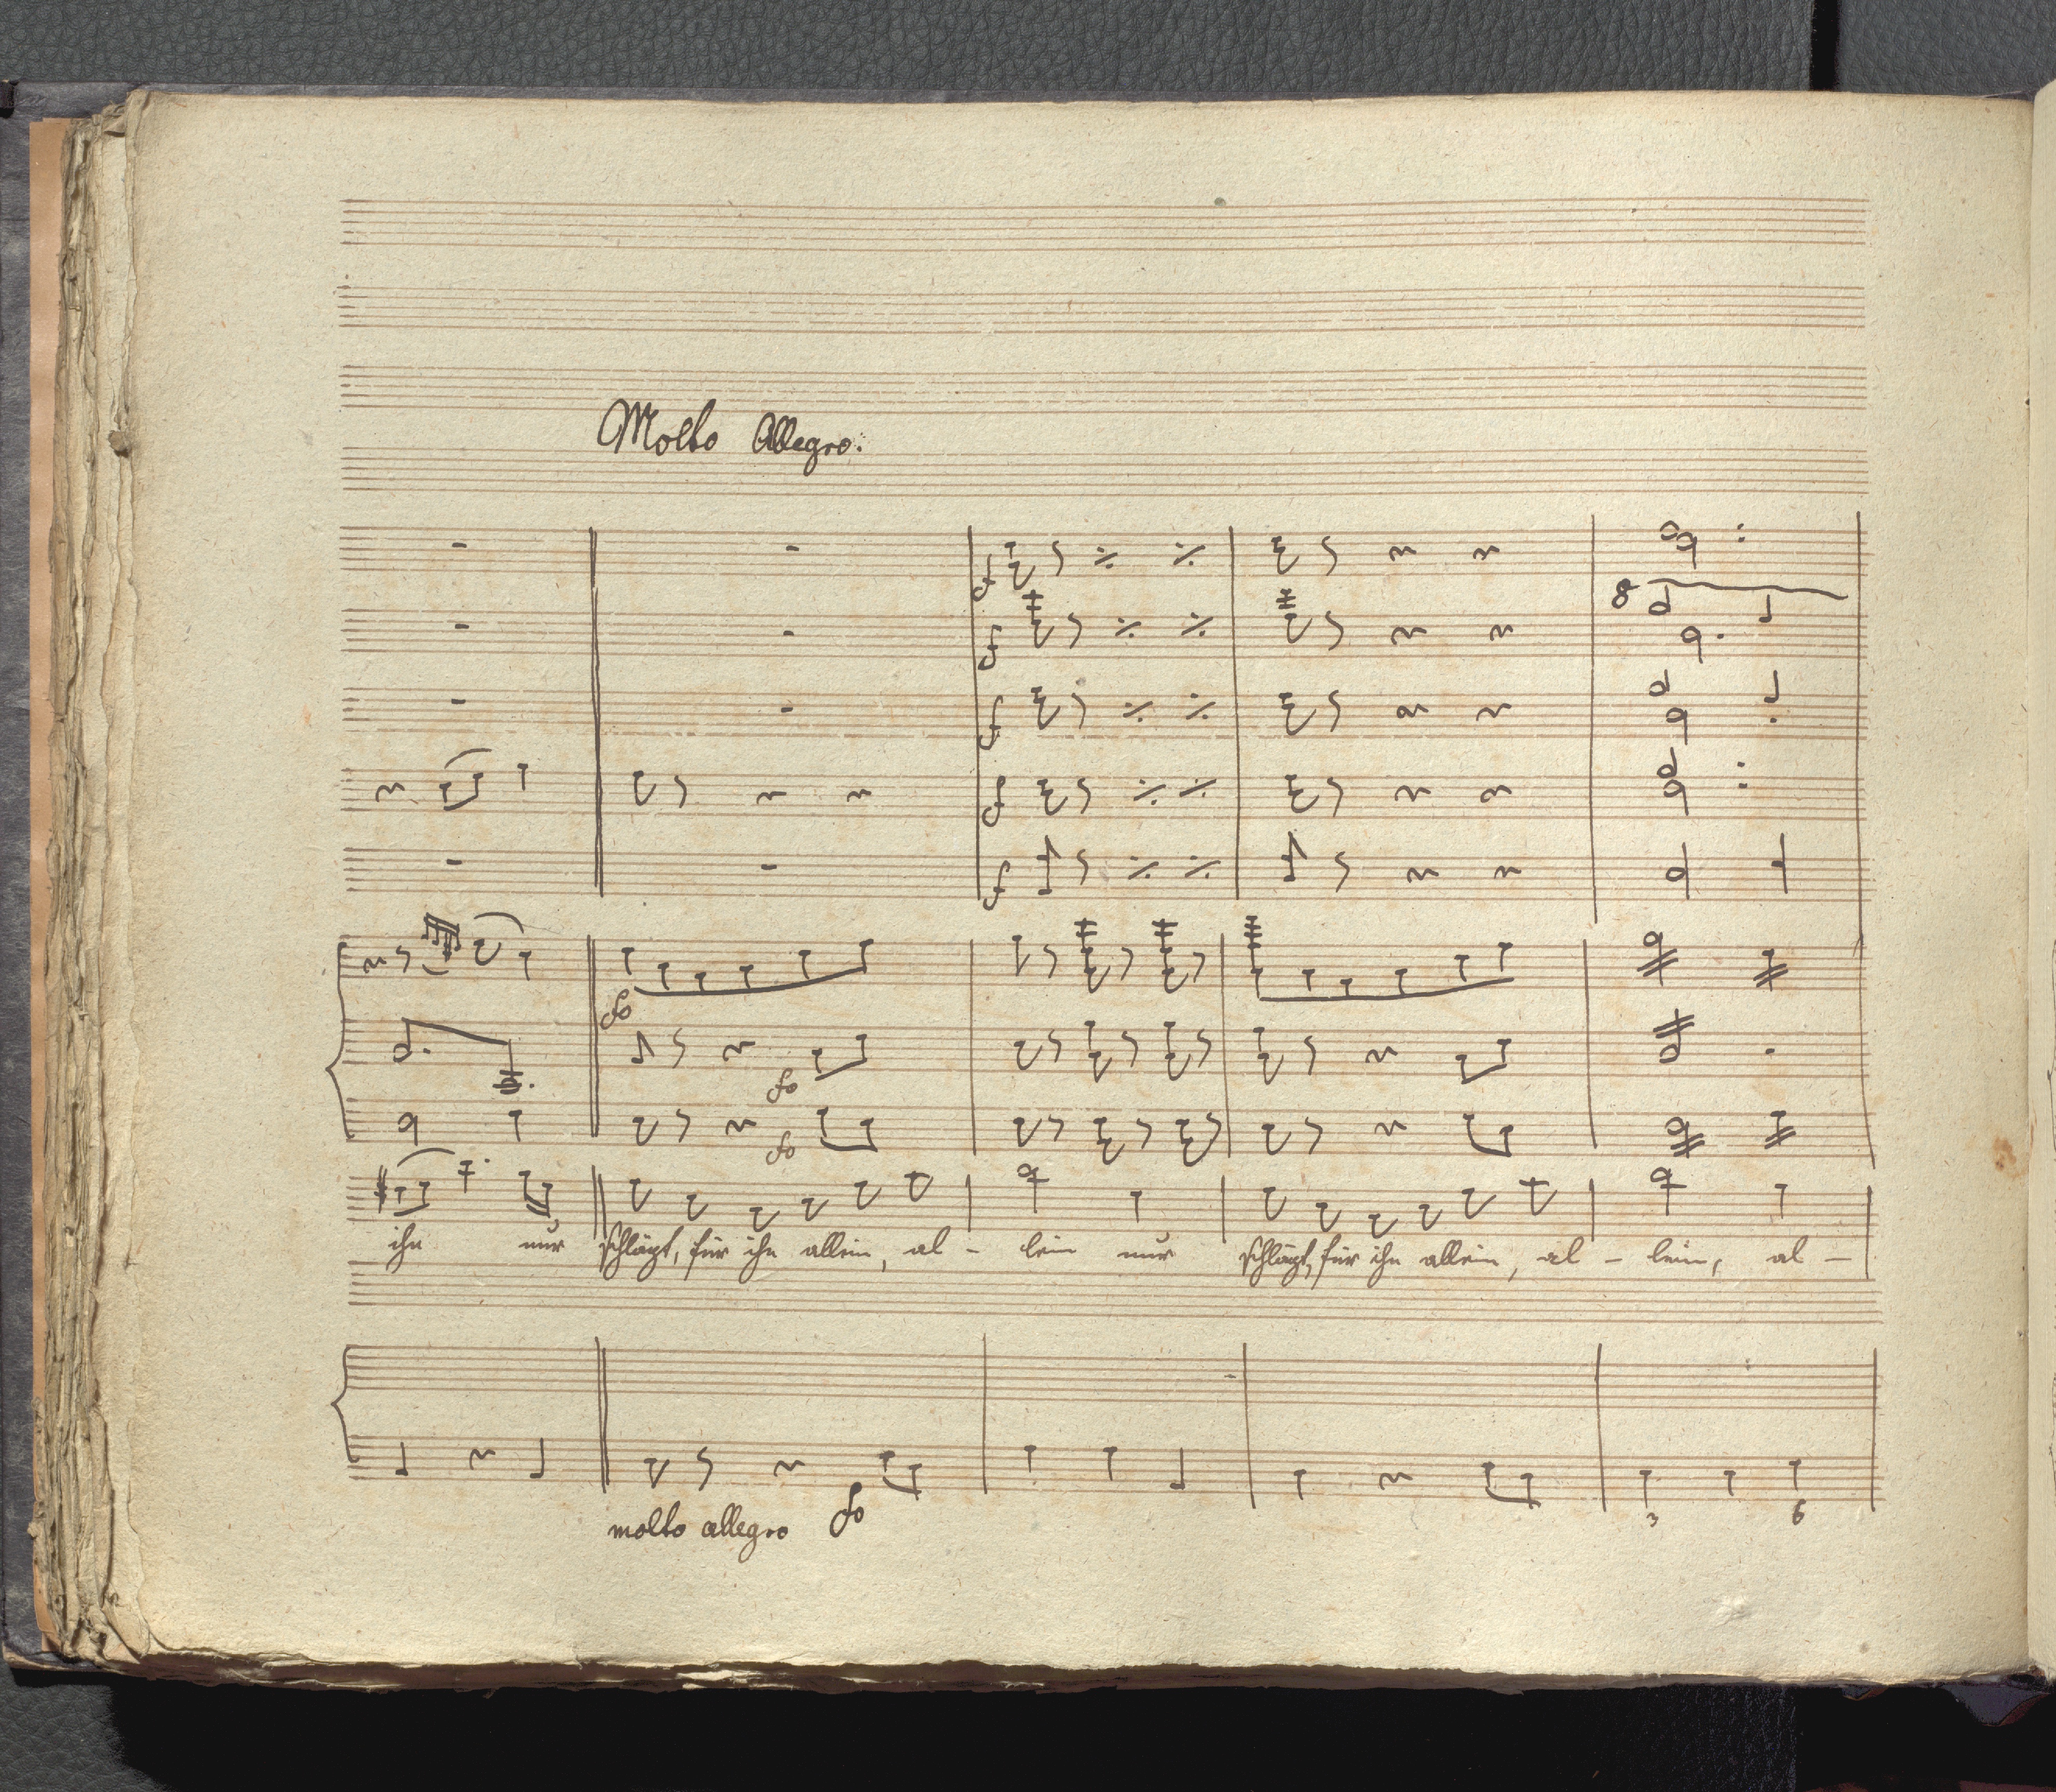 Molto Allegro.
f
8
f
f
f
f
fo
fo
fo
ihn nur schlägt, für ihn allein, al - lein nur schlägt, für ihn allein, al - lein, al -
molto allegro fo
3 6